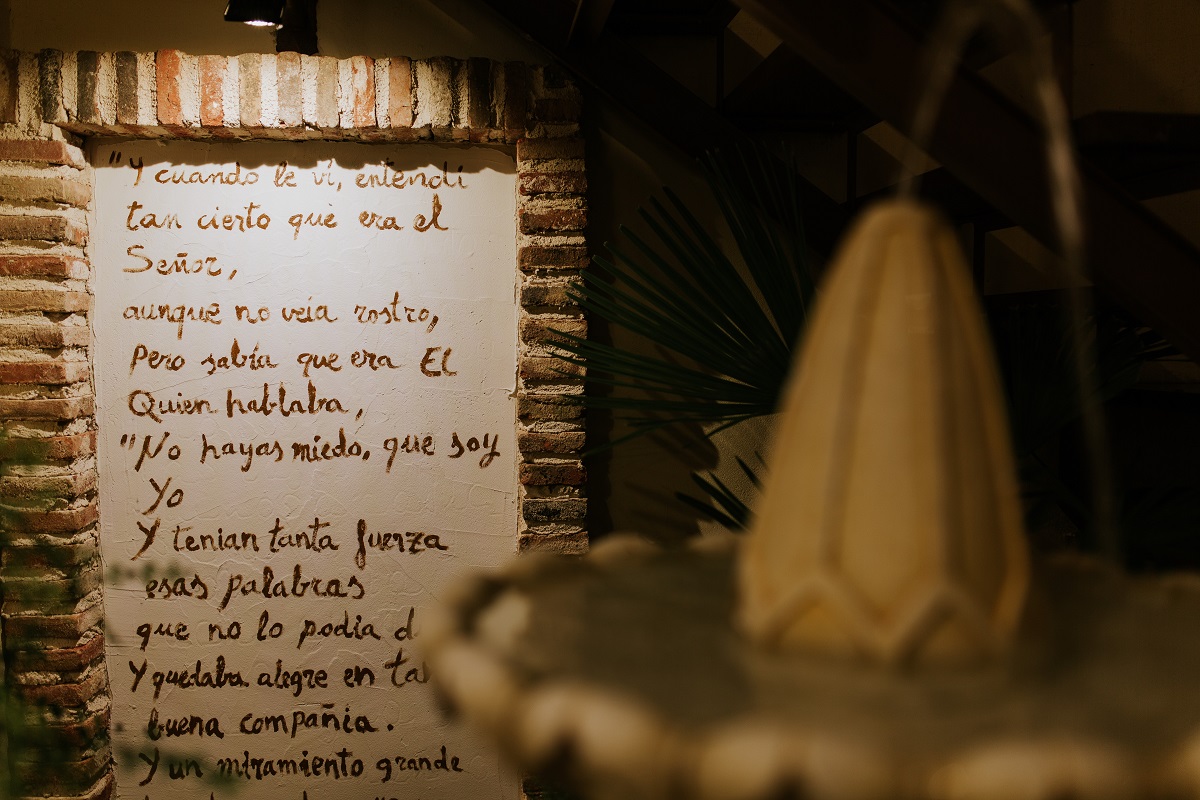 "Y cuando le vi, entendi
tan cierto que era el
Señor,
aunque no veia rostro,
Pero sabía que era El
Quien hablaba,
"No hayas miedo, que soy
Yo
Y tenian tanta fuerza
esas palabras
que no lo podia
Y quedaba alegre en
buena compañia.
Y un miramiento grande